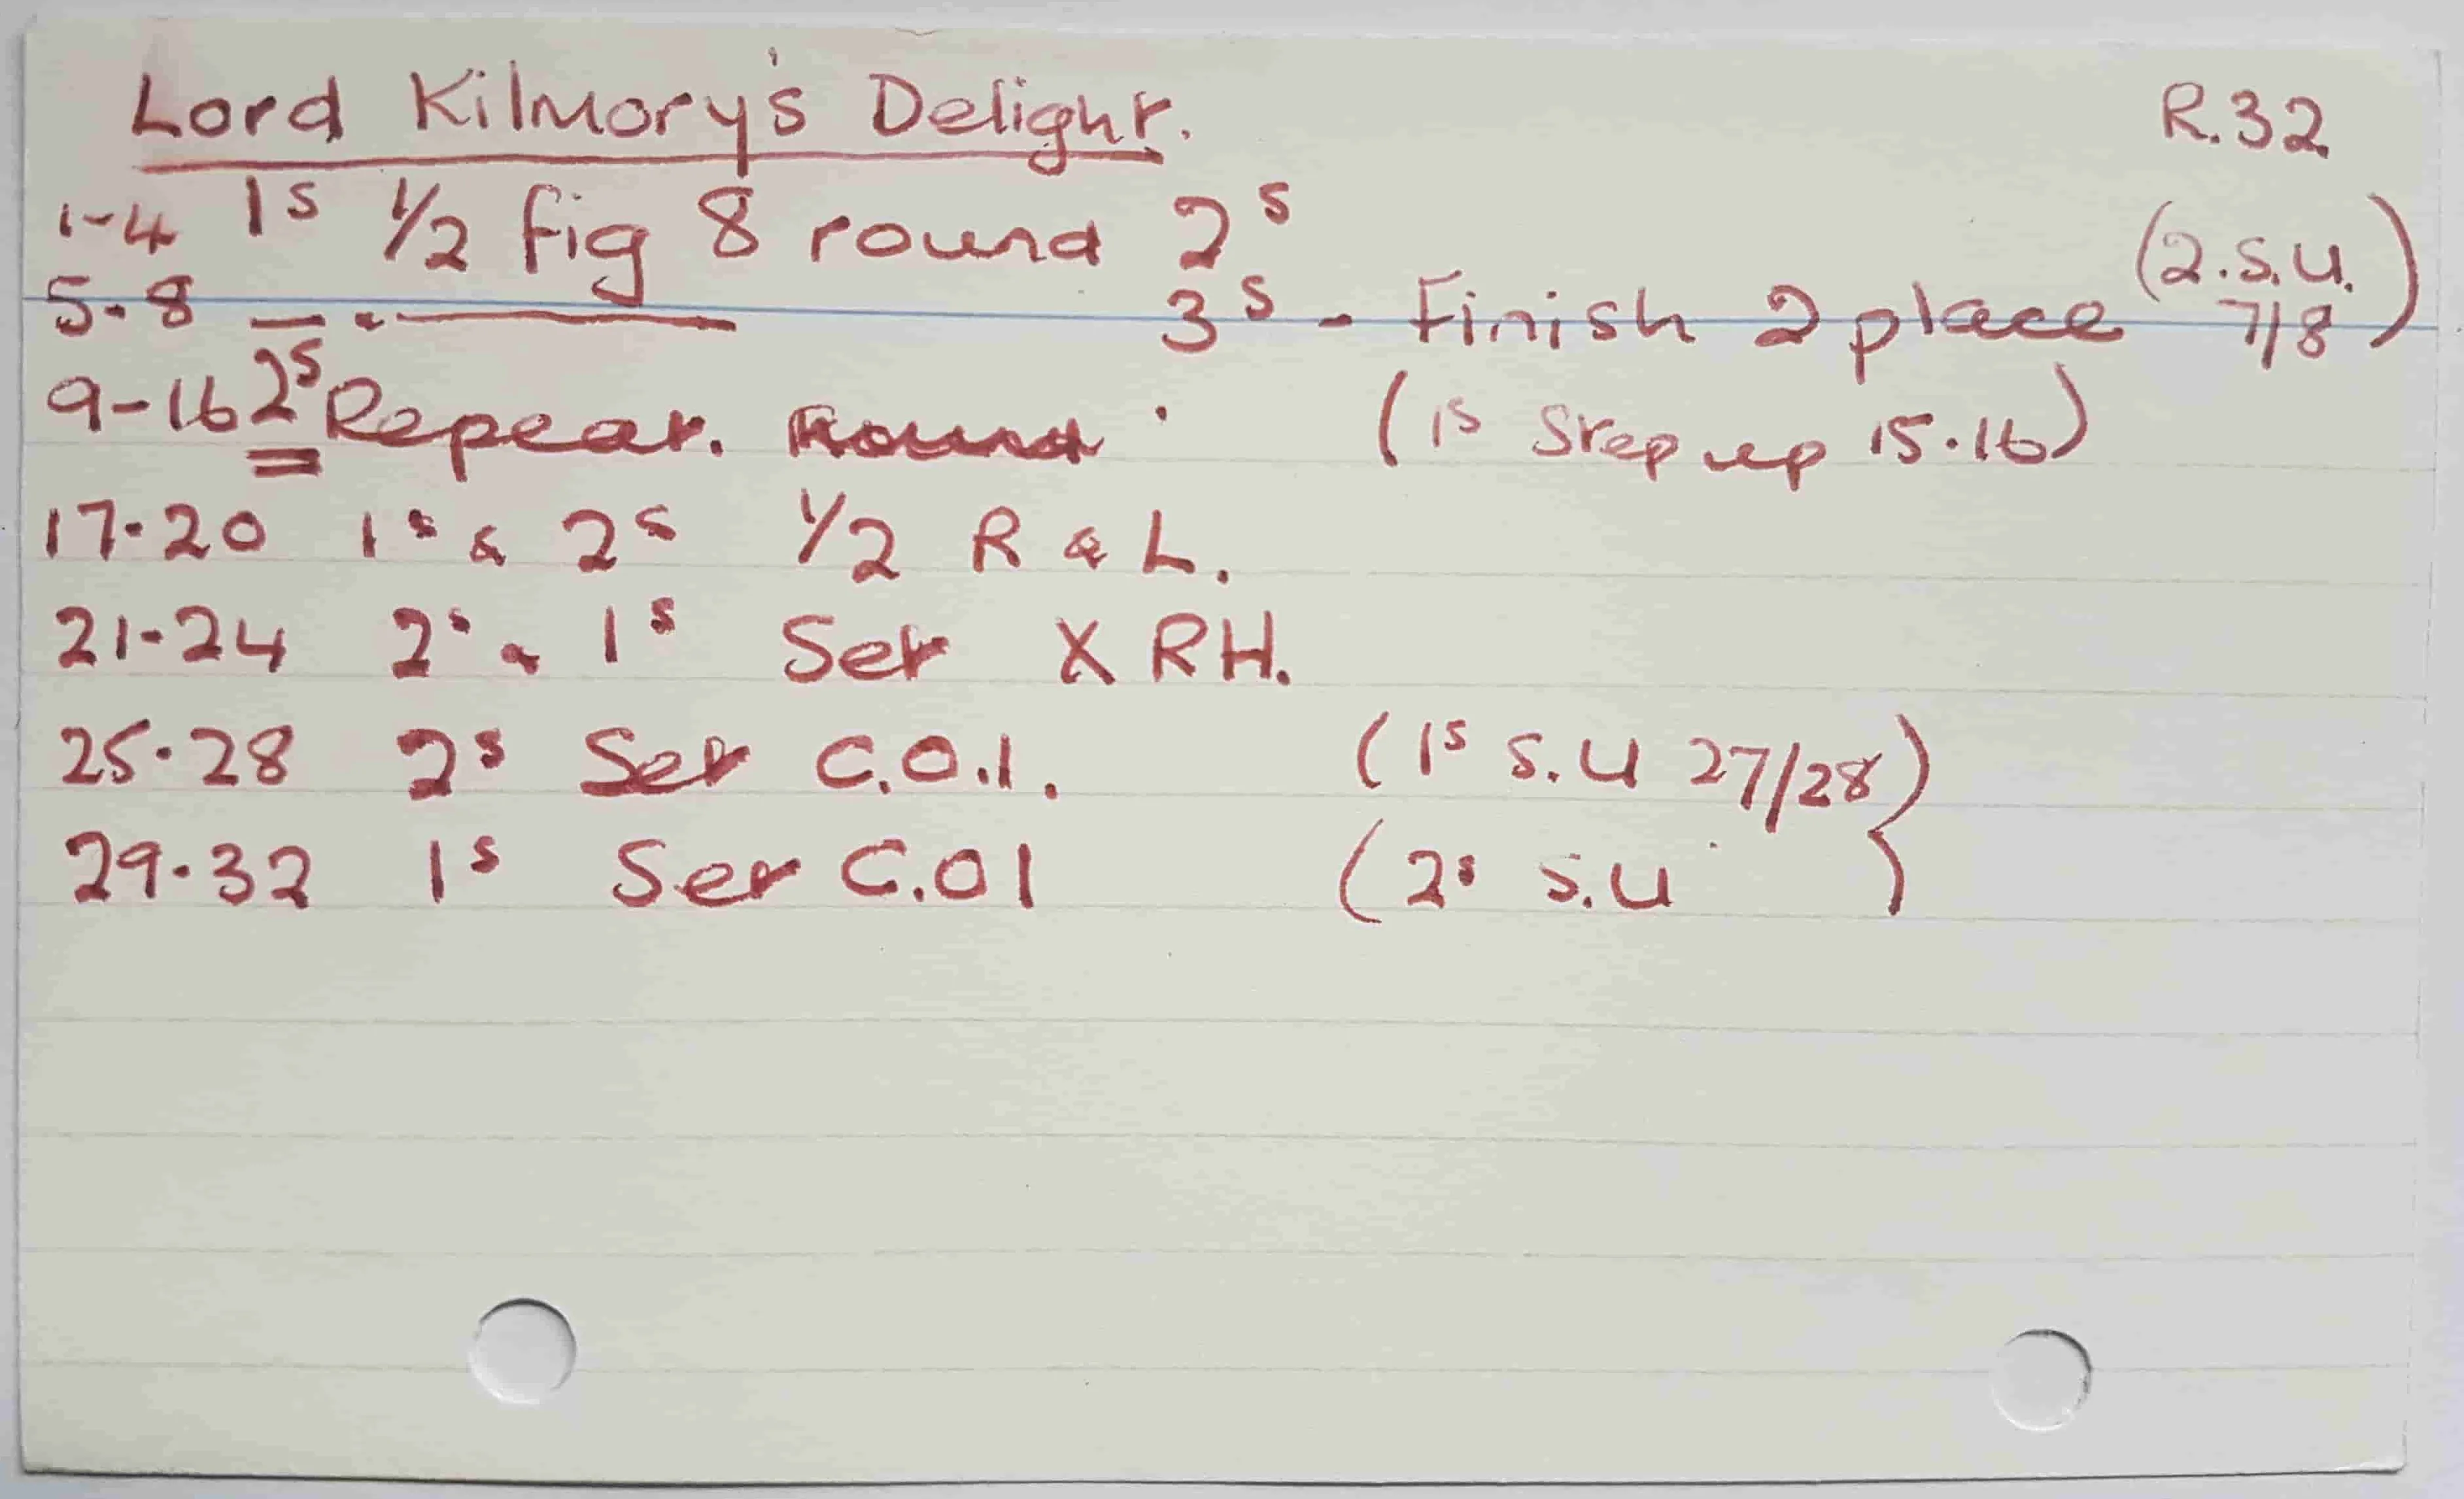 Lord Kilmory's Delight. R.32
1-4 1s 1/2 fig 8 round 2s
5-8 — " ——— 3s - Finish 2 place (2.S.U. 7/8)
9-16 2s Repeat. (1s Step up 15.16)
17.20 1s & 2s 1/2 R & L.
21-24 2s & 1s Set X RH.
25.28 2s Set C.O.1. (1s S.U 27/28)
29.32 1s Set C.O1 (2s S.U )